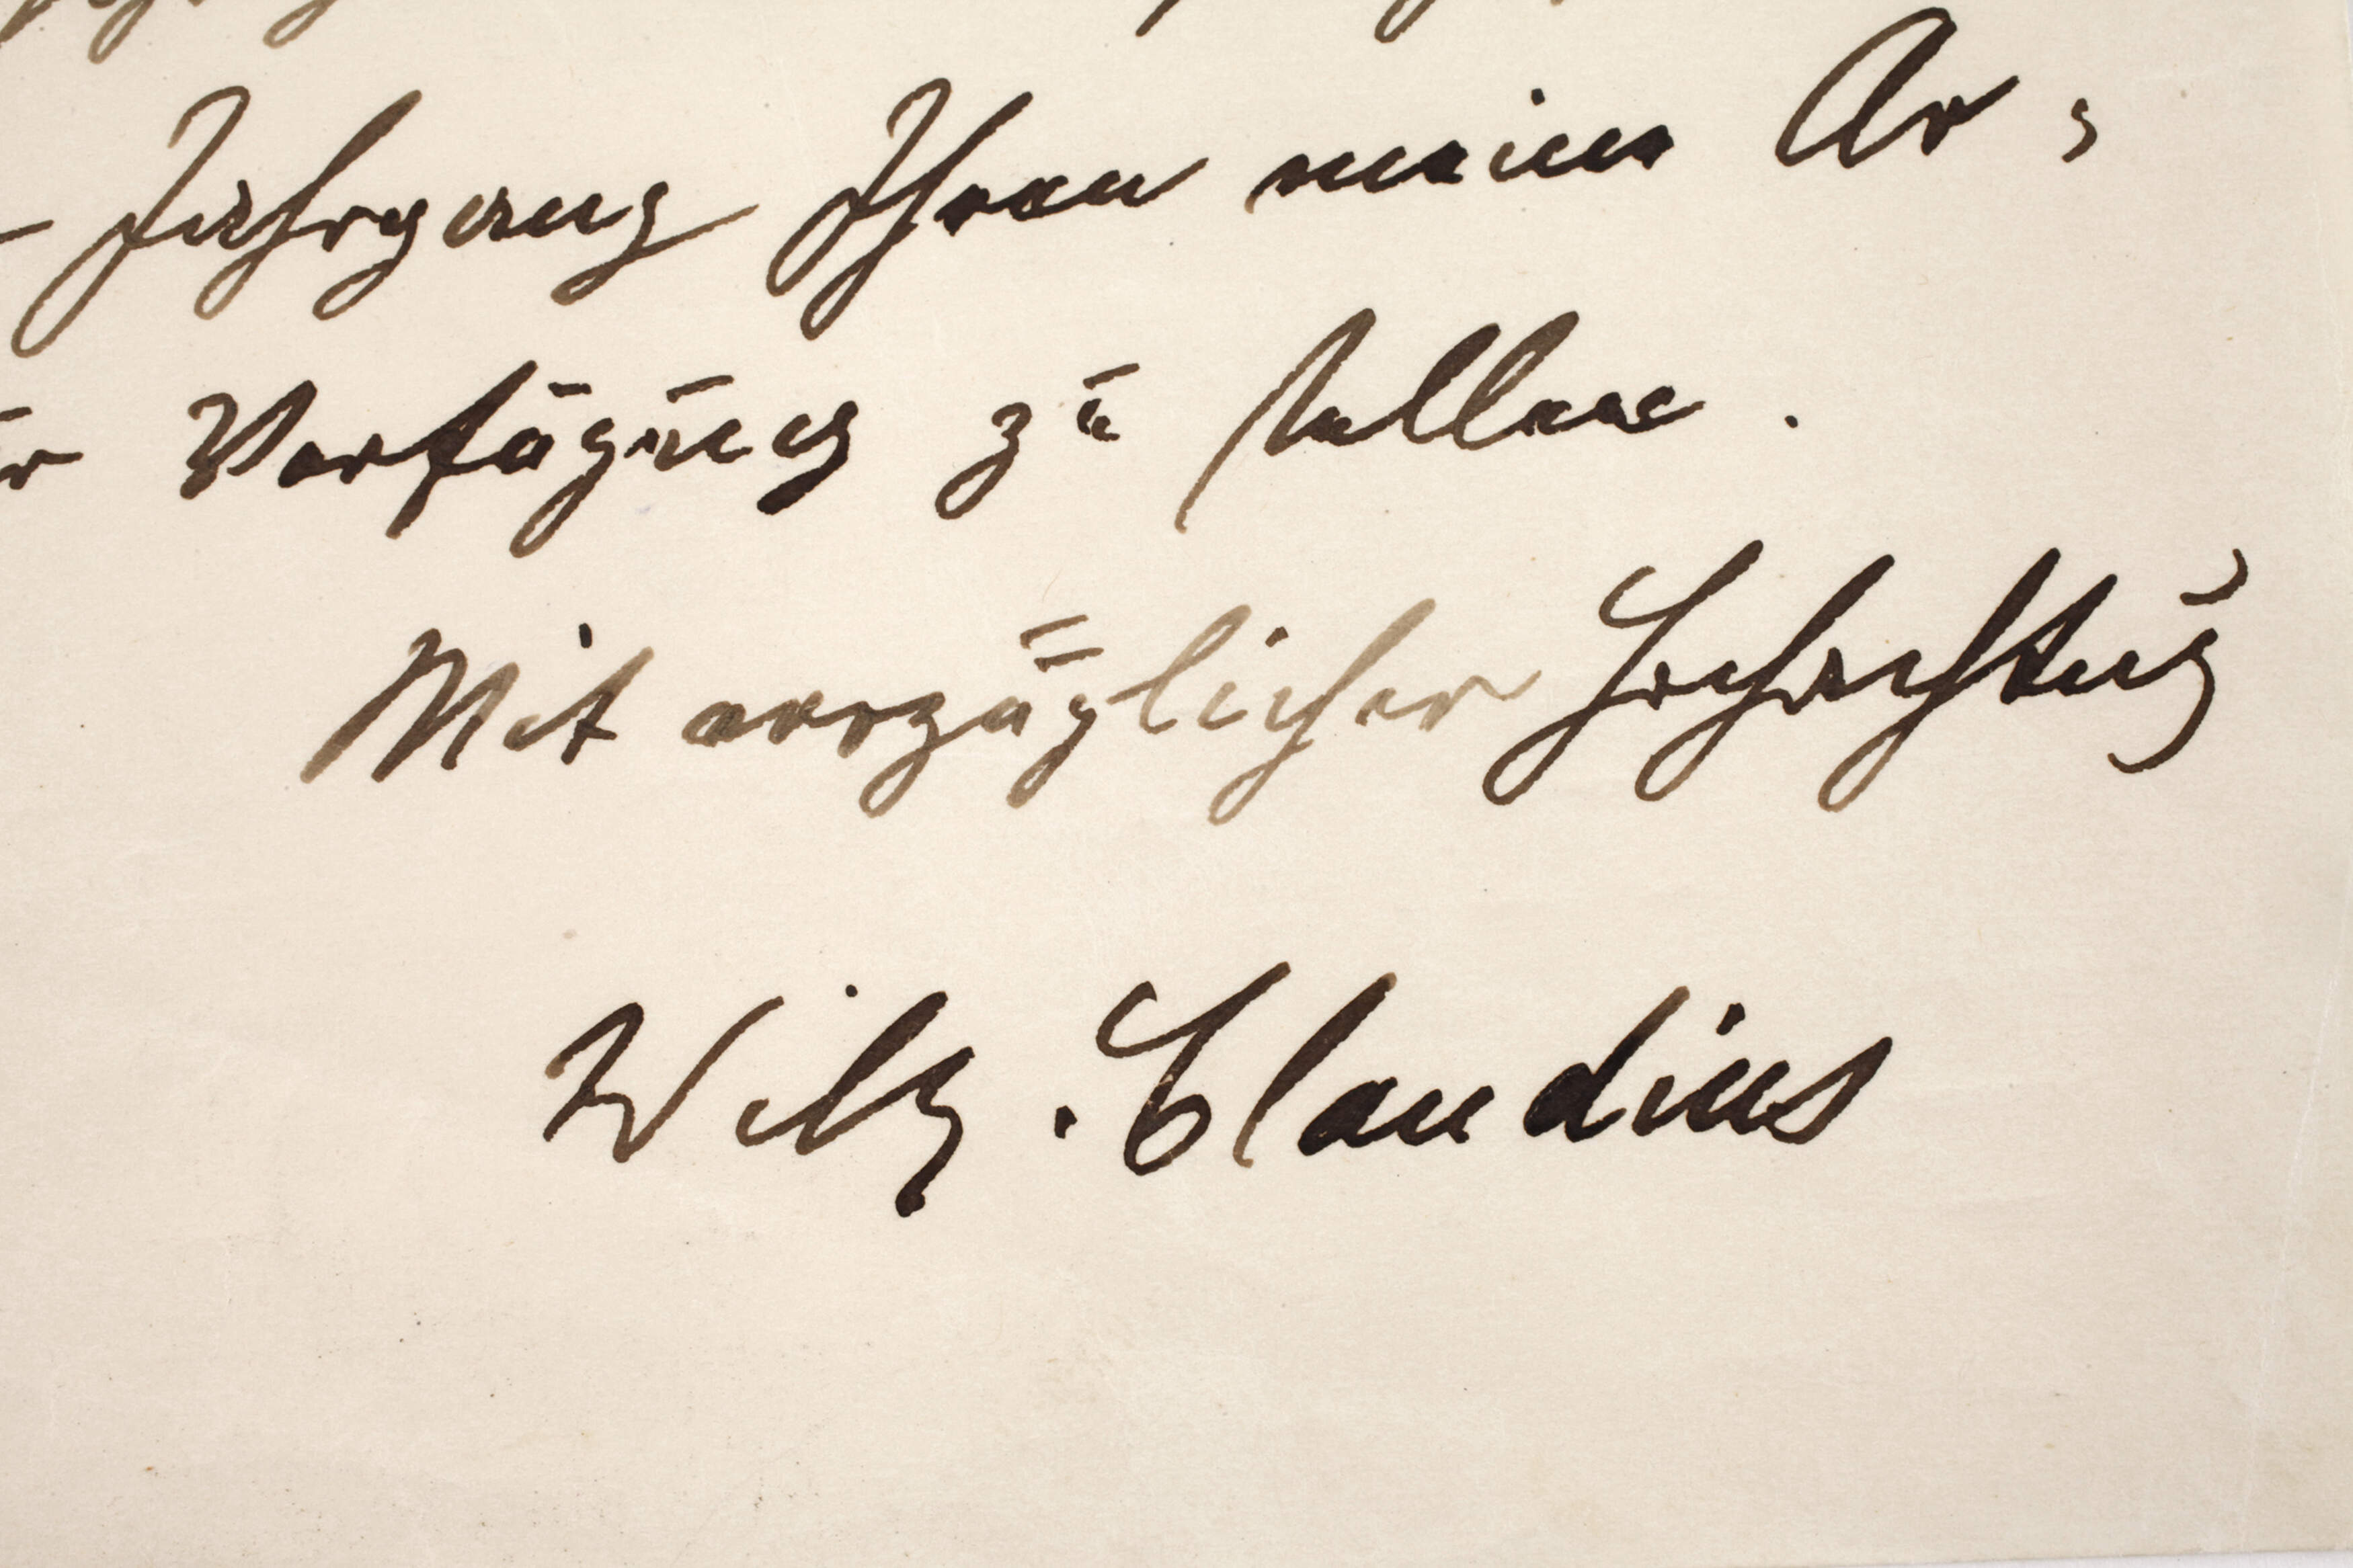 Jahrgang Ihnen meine Ar-
Verfügung zu stellen.
Mit vorzüglicher Hochachtung
Wilh. Claudius